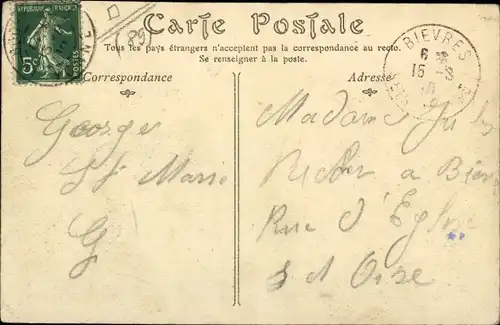 REPUBLIQUE FRANÇAISE
5c
POSTES
Carte Postale
Tous les pays étrangers n'acceptent pas la correspondance au recto.
Se renseigner à la poste.
Correspondance
Adresse
BIEVRES
George
Ste Marie
G
Madame
a Bièv
Rue d'Eglise
S et Oise